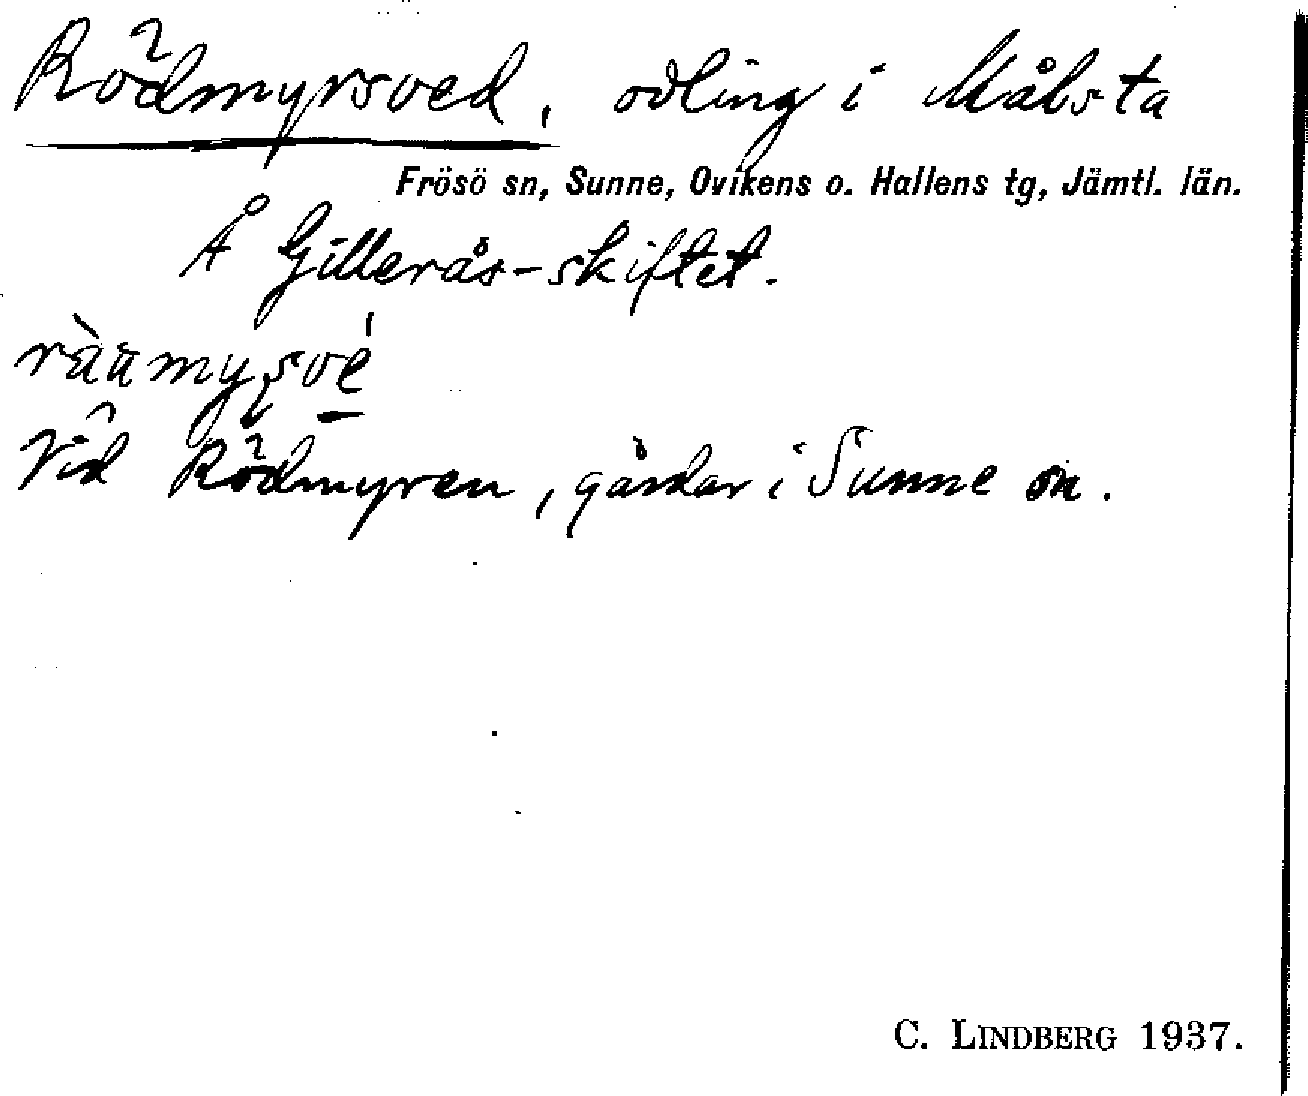 Rödmyrsved, odling i Målsta
Frösö sn, Sunne, Ovikens o. Hallens tg, Jämtl. län.
Å Gillerås-skiftet.
Vid Rödmyren, gårdar i Sunne sn.
C. LINDBERG 1937.